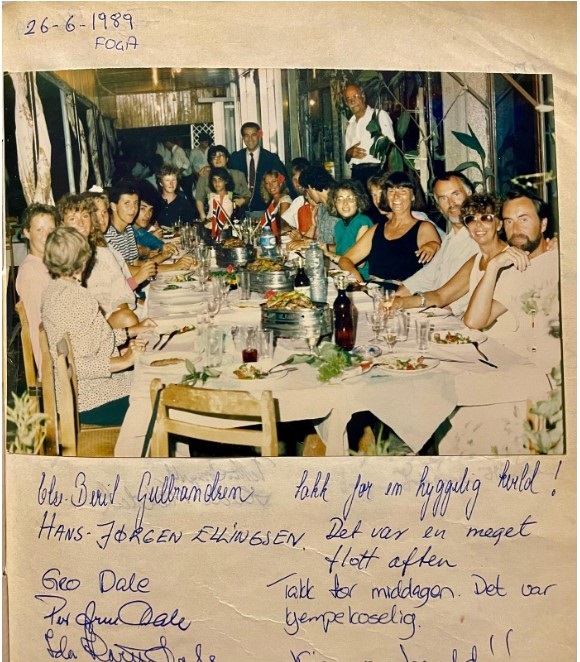 26-6-1989
FOGA
Else-Berit Gulbrandsen takk for en hyggelig kveld!
HANS-JØRGEN ELLINGSEN. Det var en meget
flott aften
Geo Dale
Takk for middagen. Det var
kjempekoselig.
Per Dale
Ida